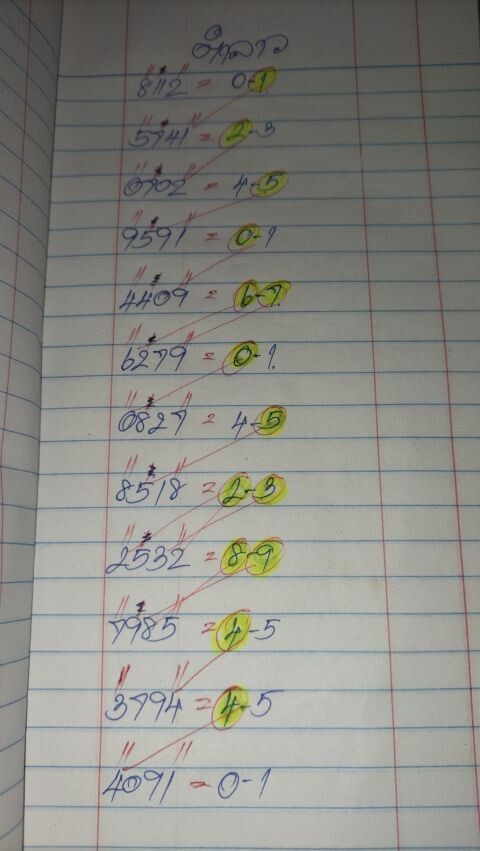 8112 = 0-1
5741 = 2-3
0702 = 4-5
9591 = 0-1
4409 = 6-7
6279 = 0-1
0827 = 4-5
8518 = 2-3
2532 = 8-9
7985 = 4-5
3794 = 4-5
4091 = 0-1